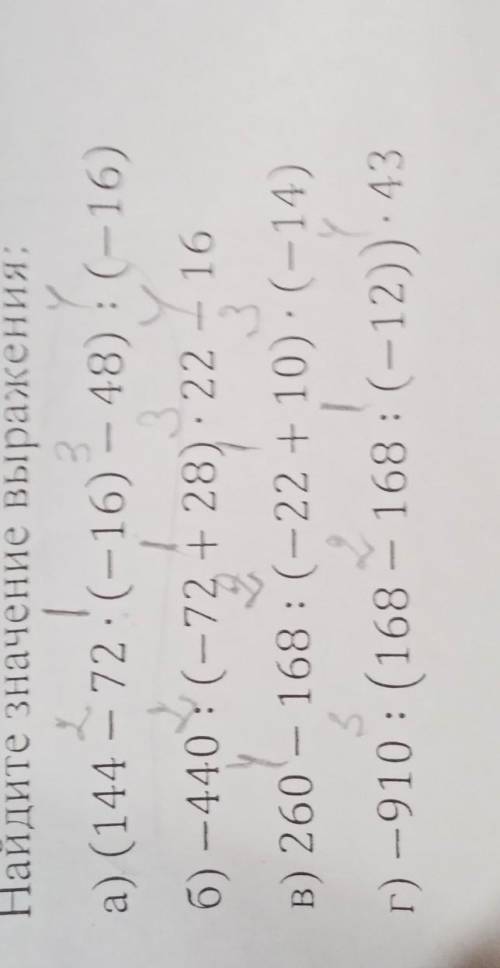 Найдите значение выражения:
а) (144 − 72 · (−16) − 48) : (−16)
б) −440 : (−72 + 28) · 22 − 16
в) 260 − 168 : (−22 + 10) · (−14)
г) −910 : (168 − 168 : (−12)) · 43